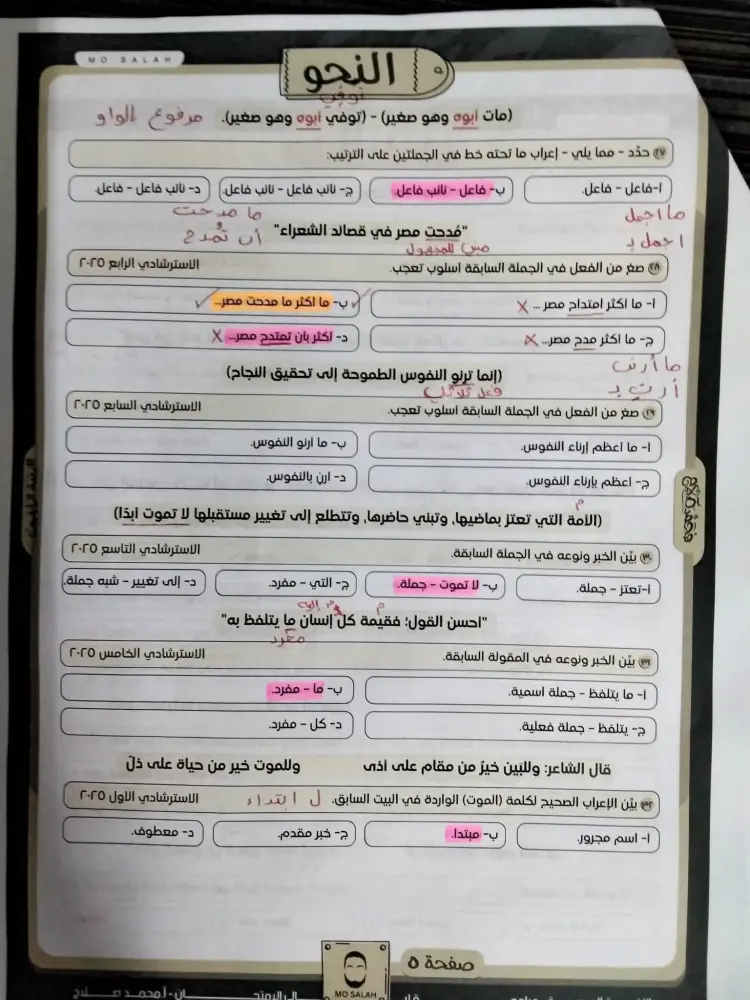 MO SALAH
النحو
توفي
(مات أبوه وهو صغير) - (توفي أبوه وهو صغير). مرفوع بالواو
٢٧ حدّد - مما يلي - إعراب ما تحته خط في الجملتين على الترتيب:
أ-فاعل - فاعل. ب- فاعل - نائب فاعل. ج- نائب فاعل - نائب فاعل. د- نائب فاعل - فاعل.
ما اجمل ما مدحت
"مُدحت مصر في قصائد الشعراء"
اجمل بـ أن تُمدح
مبني للمجهول
٢٨ صغ من الفعل في الجملة السابقة أسلوب تعجب. الاسترشادي الرابع ٢٠٢٥
أ- ما أكثر امتداح مصر ... ب- ما أكثر ما مدحت مصر...
ج- ما أكثر مدح مصر... د- أكثر بأن تمتدح مصر...
(إنما ترنو النفوس الطموحة إلى تحقيق النجاح)
فعل ثلاثي
٢٩ صغ من الفعل في الجملة السابقة أسلوب تعجب. الاسترشادي السابع ٢٠٢٥
أ- ما أعظم إرناء النفوس. ب- ما أرنو النفوس.
ج- أعظم بإرناء النفوس. د- أرن بالنفوس.
م
(الأمة التي تعتز بماضيها، وتبني حاضرها، وتتطلع إلى تغيير مستقبلها لا تموت أبدًا)
٣٠ بيّن الخبر ونوعه في الجملة السابقة. الاسترشادي التاسع ٢٠٢٥
أ-تعتز - جملة. ب- لا تموت - جملة. ج- التي - مفرد. د- إلى تغيير - شبه جملة.
م م إليه
"أحسن القول؛ فقيمة كل إنسان ما يتلفظ به"
مفرد
٣١ بيّن الخبر ونوعه في المقولة السابقة. الاسترشادي الخامس ٢٠٢٥
أ- ما يتلفظ - جملة اسمية. ب- ما - مفرد.
ج- يتلفظ - جملة فعلية. د- كل - مفرد.
قال الشاعر: وللبَين خيرٌ من مقام على أذى وللموت خير من حياة على ذلّ
٣٢ بيّن الإعراب الصحيح لكلمة (الموت) الواردة في البيت السابق. ل ابتداء الاسترشادي الأول ٢٠٢٥
أ- اسم مجرور. ب- مبتدأ. ج- خبر مقدم. د- معطوف.
صفحة ٥
MO SALAH